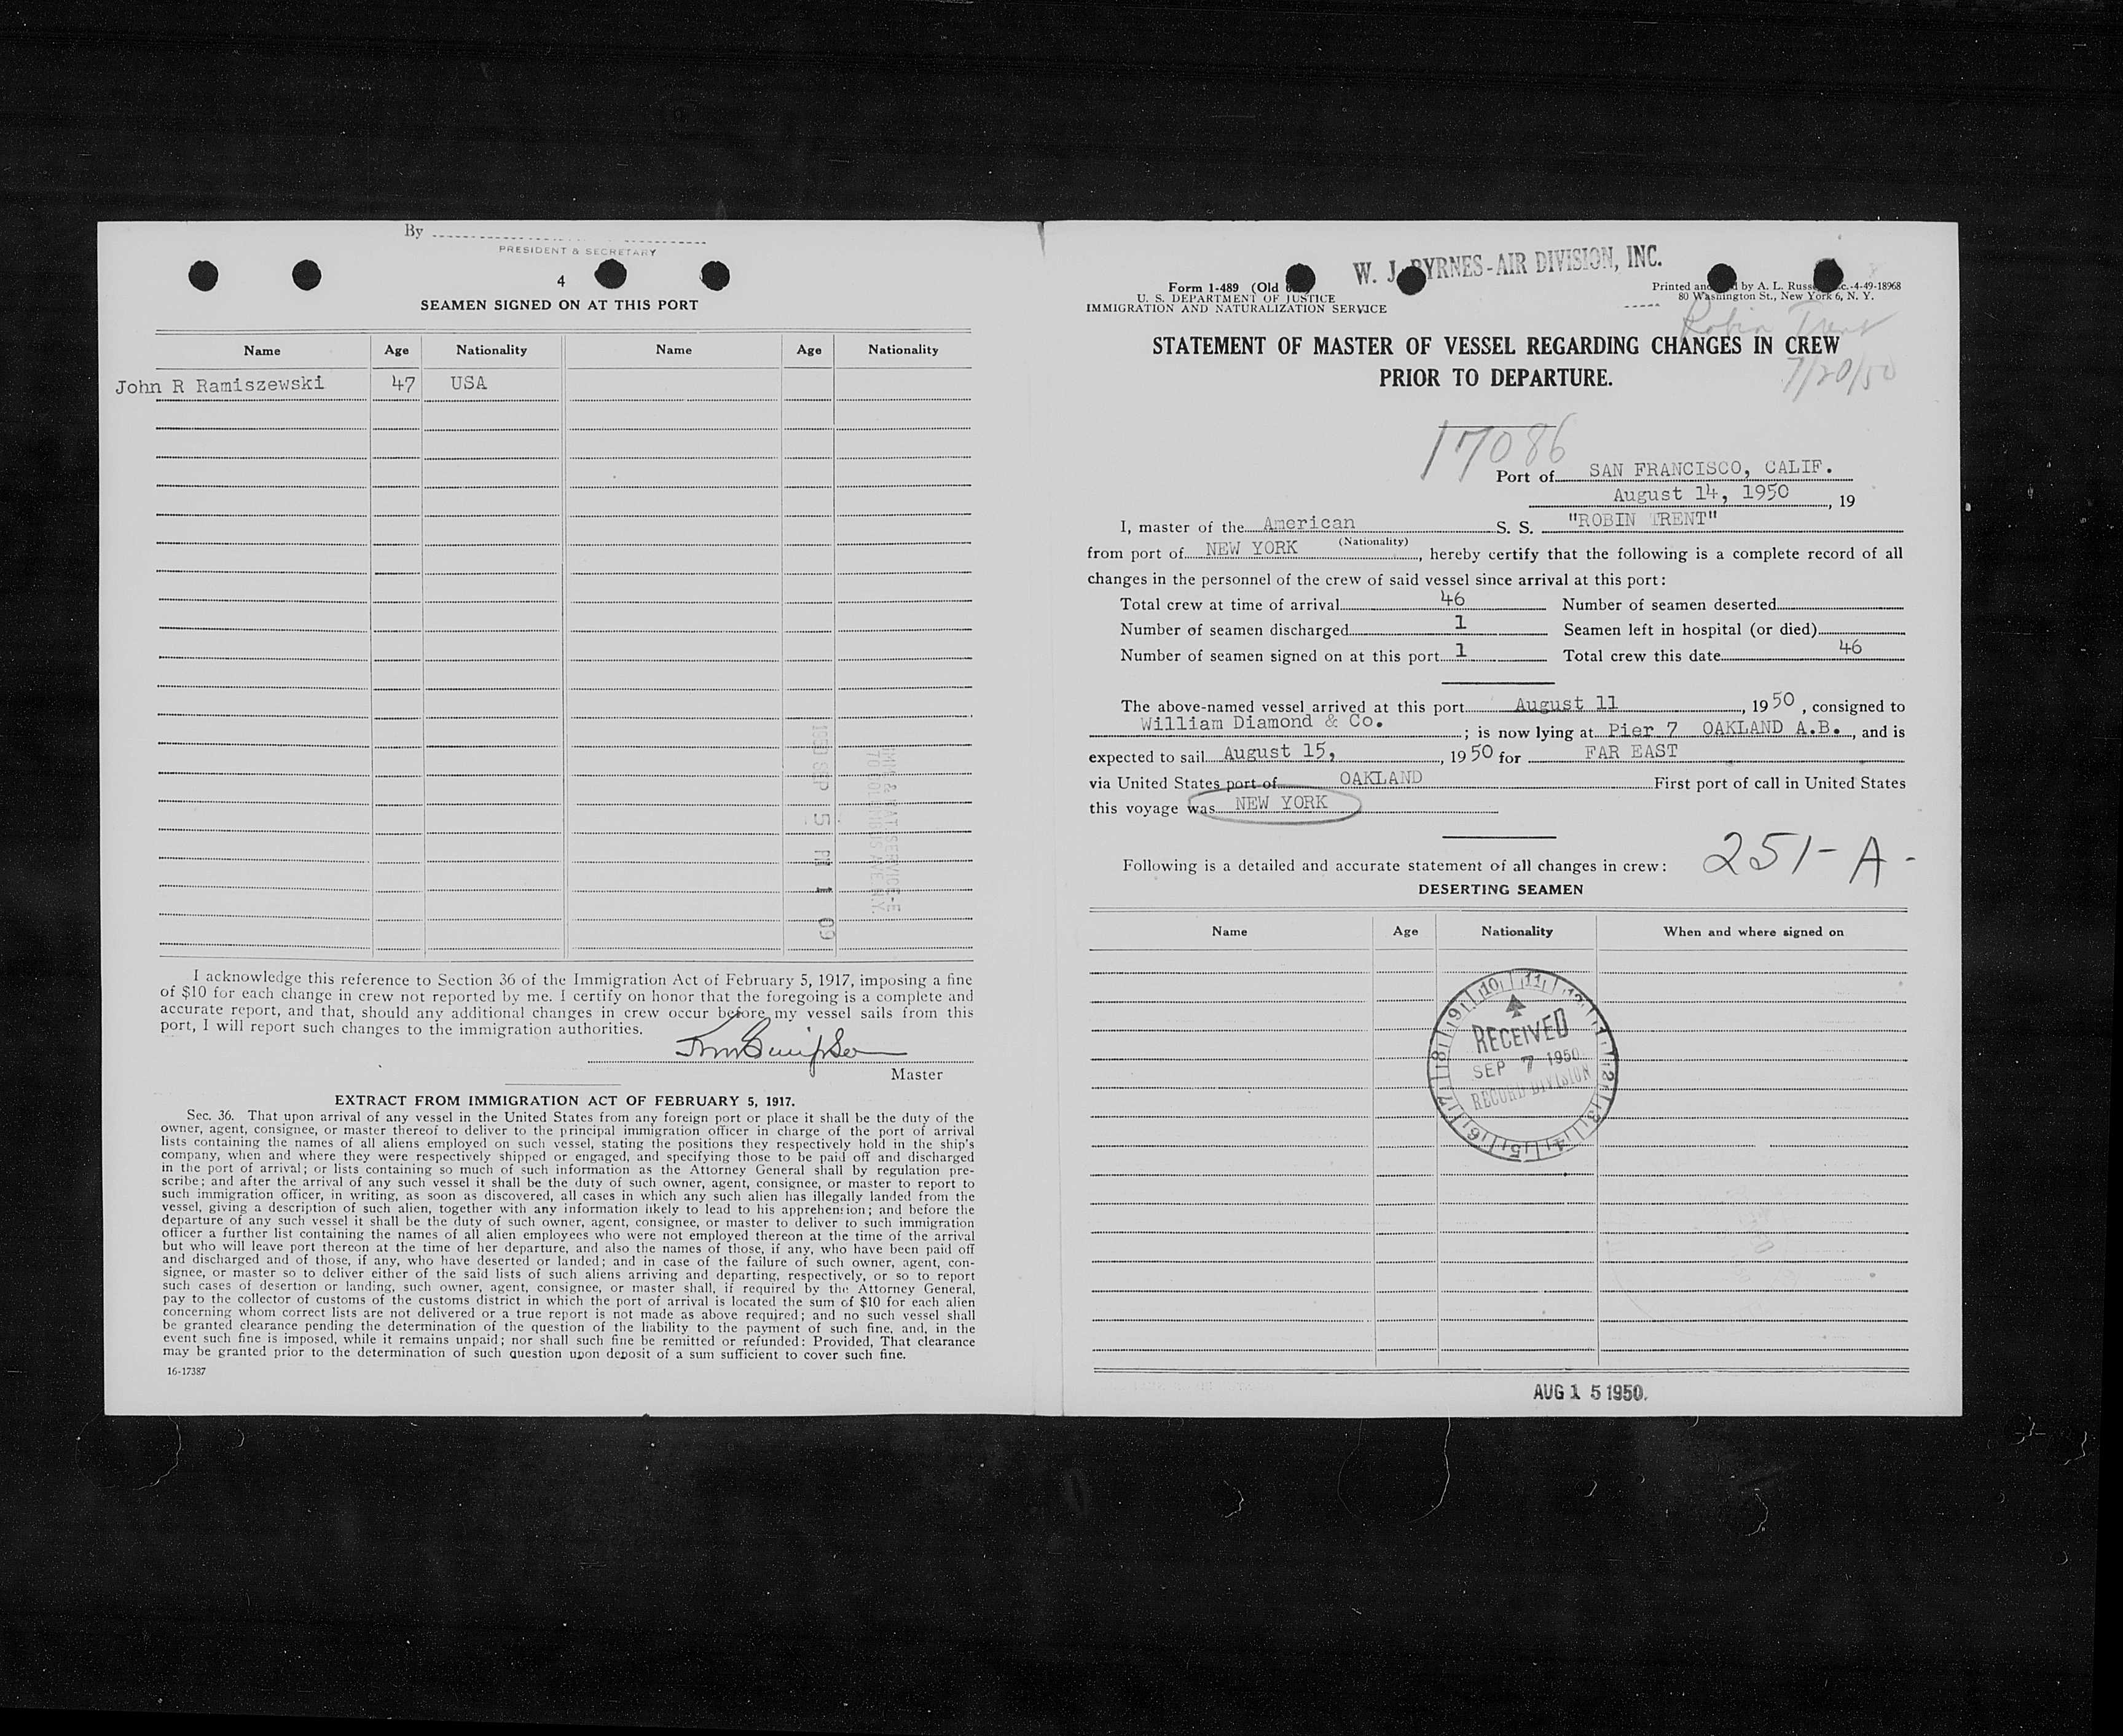 By
PRESIDENT & SECRETARY
4
SEAMEN SIGNED ON AT THIS PORT
Name Age Nationality Name Age Nationality
John R Ramiszewski 47 USA
1950 SEP 5 PM 1 09
I acknowledge this reference to Section 36 of the Immigration Act of February 5, 1917, imposing a fine
of $10 for each change in crew not reported by me. I certify on honor that the foregoing is a complete and
accurate report, and that, should any additional changes in crew occur before my vessel sails from this
port, I will report such changes to the immigration authorities.
Master
EXTRACT FROM IMMIGRATION ACT OF FEBRUARY 5, 1917.
Sec. 36. That upon arrival of any vessel in the United States from any foreign port or place it shall be the duty of the
owner, agent, consignee, or master thereof to deliver to the principal immigration officer in charge of the port of arrival
lists containing the names of all aliens employed on such vessel, stating the positions they respectively hold in the ship's
company, when and where they were respectively shipped or engaged, and specifying those to be paid off and discharged
in the port of arrival; or lists containing so much of such information as the Attorney General shall by regulation pre-
scribe; and after the arrival of any such vessel it shall be the duty of such owner, agent, consignee, or master to report to
such immigration officer, in writing, as soon as discovered, all cases in which any such alien has illegally landed from the
vessel, giving a description of such alien, together with any information likely to lead to his apprehension; and before the
departure of any such vessel it shall be the duty of such owner, agent, consignee, or master to deliver to such immigration
officer a further list containing the names of all alien employees who were not employed thereon at the time of the arrival
but who will leave port thereon at the time of her departure, and also the names of those, if any, who have been paid off
and discharged and of those, if any, who have deserted or landed; and in case of the failure of such owner, agent, con-
signee, or master so to deliver either of the said lists of such aliens arriving and departing, respectively, or so to report
such cases of desertion or landing, such owner, agent, consignee, or master shall, if required by the Attorney General,
pay to the collector of customs of the customs district in which the port of arrival is located the sum of $10 for each alien
concerning whom correct lists are not delivered or a true report is not made as above required; and no such vessel shall
be granted clearance pending the determination of the question of the liability to the payment of such fine, and, in the
event such fine is imposed, while it remains unpaid; nor shall such fine be remitted or refunded: Provided, That clearance
may be granted prior to the determination of such question upon deposit of a sum sufficient to cover such fine.
16-17387
W. J. BYRNES-AIR DIVISION, INC.
Form 1-489 (Old
U. S. DEPARTMENT OF JUSTICE
IMMIGRATION AND NATURALIZATION SERVICE
Printed and by A. L. Russ c.-4-49-18968
80 Washington St., New York 6, N. Y.
Robin Trent
7/20/50
STATEMENT OF MASTER OF VESSEL REGARDING CHANGES IN CREW
PRIOR TO DEPARTURE.
17086
Port of SAN FRANCISCO, CALIF.
August 14, 1950, 19
I, master of the American S. S. "ROBIN TRENT"
(Nationality)
from port of NEW YORK, hereby certify that the following is a complete record of all
changes in the personnel of the crew of said vessel since arrival at this port:
Total crew at time of arrival 46 Number of seamen deserted
Number of seamen discharged 1 Seamen left in hospital (or died)
Number of seamen signed on at this port 1 Total crew this date 46
The above-named vessel arrived at this port August 11, 1950, consigned to
William Diamond & Co.; is now lying at Pier 7 OAKLAND A.B., and is
expected to sail August 15, 1950 for FAR EAST
via United States port of OAKLAND First port of call in United States
this voyage was NEW YORK
251-A-
Following is a detailed and accurate statement of all changes in crew:
DESERTING SEAMEN
Name Age Nationality When and where signed on
10 11 12 1 2 3 4 5 6 7 8 9
RECEIVED
SEP 7 1950
RECORD DIVISION
AUG 15 1950.